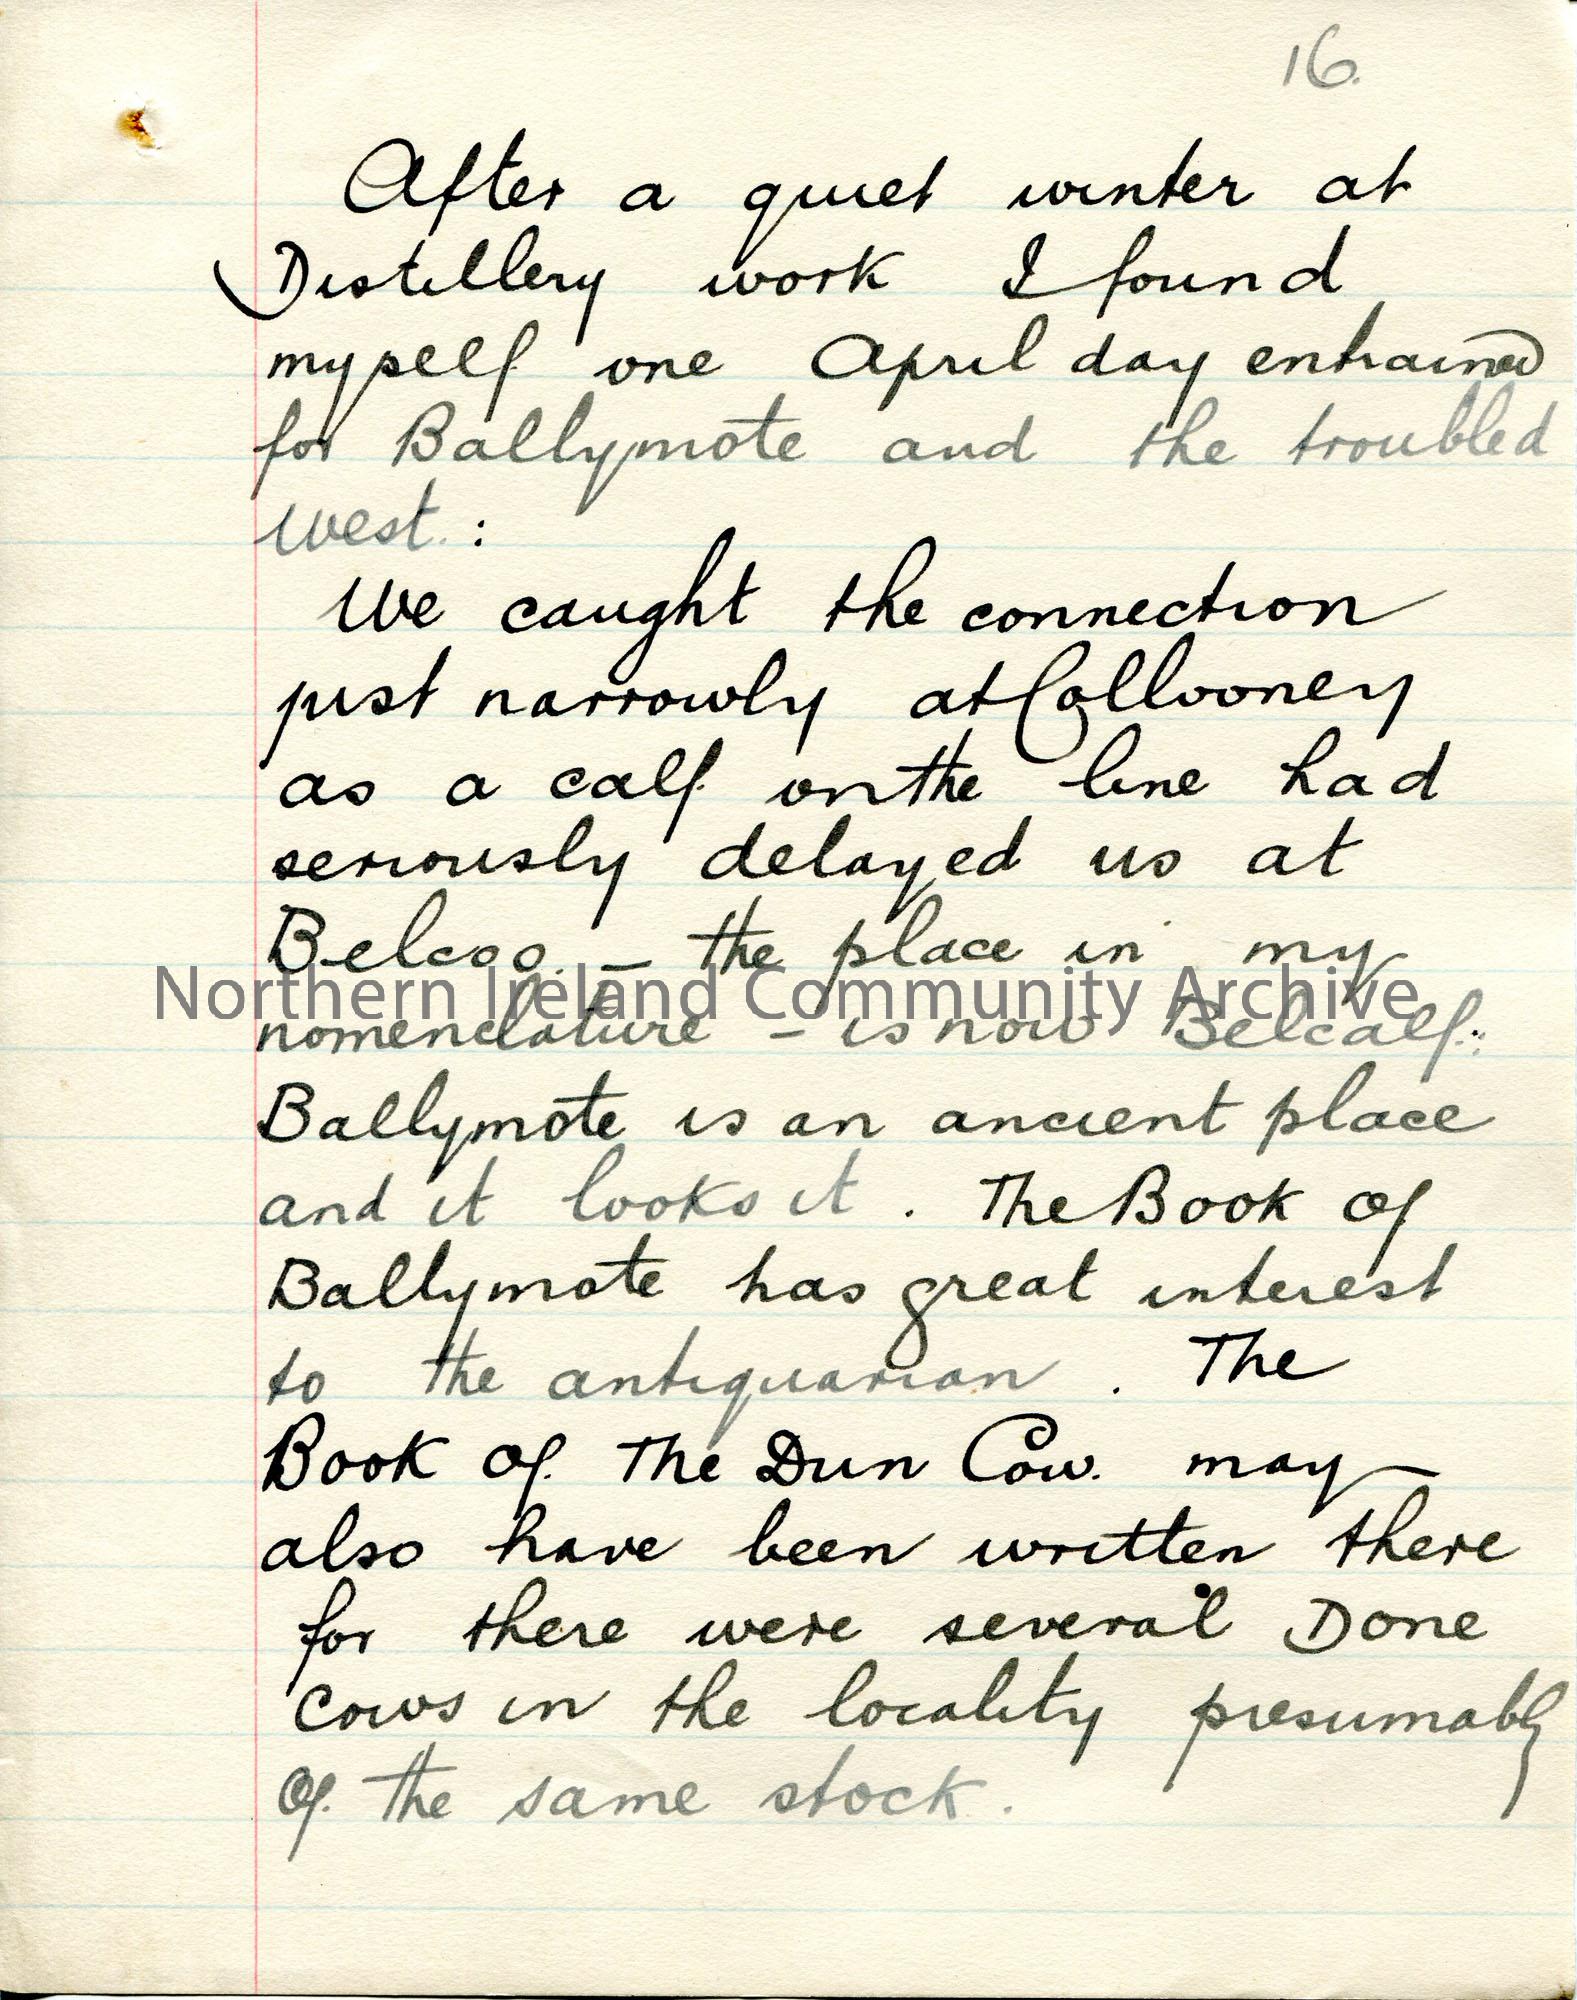 16.
After a quiet winter at
Distillery work I found
myself one April day entrained
for Ballymote and the troubled
West.:
We caught the connection
just narrowly at Collooney
as a calf on the line had
seriously delayed us at
Belcoo. – the place in my
Northern Ireland Community Archive
nomenclature – is now Belcalf.:
Ballymote is an ancient place
and it looks it. The Book of
Ballymote has great interest
to the antiquarian. The
Book of The Dun Cow. may
also have been written there
for there were several Done
Cows in the locality presumably
of the same stock.